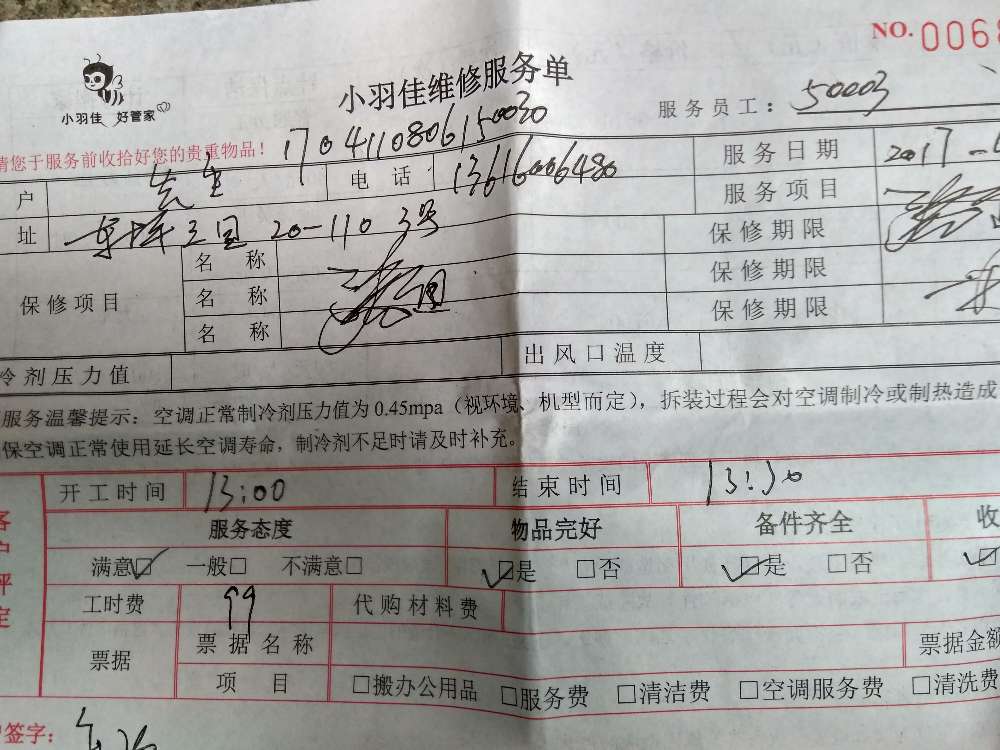 NO. 0068
小羽佳 好管家
小羽佳维修服务单
服务员工： 50003
请您于服务前收拾好您的贵重物品！ 1704110806150030
户 先生 电 话 13616006480 服务日期 2017
服务项目
址 20-110 3号 保修期限
保修项目 名 称 保修期限
名 称 保修期限
名 称
冷剂压力值 出风口温度
服务温馨提示：空调正常制冷剂压力值为0.45mpa（视环境、机型而定），拆装过程会对空调制冷或制热造成
保空调正常使用延长空调寿命，制冷剂不足时请及时补充。
客户评定
开工时间 13:00 结束时间 13:30
服务态度 物品完好 备件齐全 收
满意☑ 一般□ 不满意□ ☑是 □否 ☑是 □否 ☑
工时费 99 代购材料费
票据 票据名称 票据金额
项 目 □搬办公用品 □服务费 □清洁费 □空调服务费 □清洗费
签字：